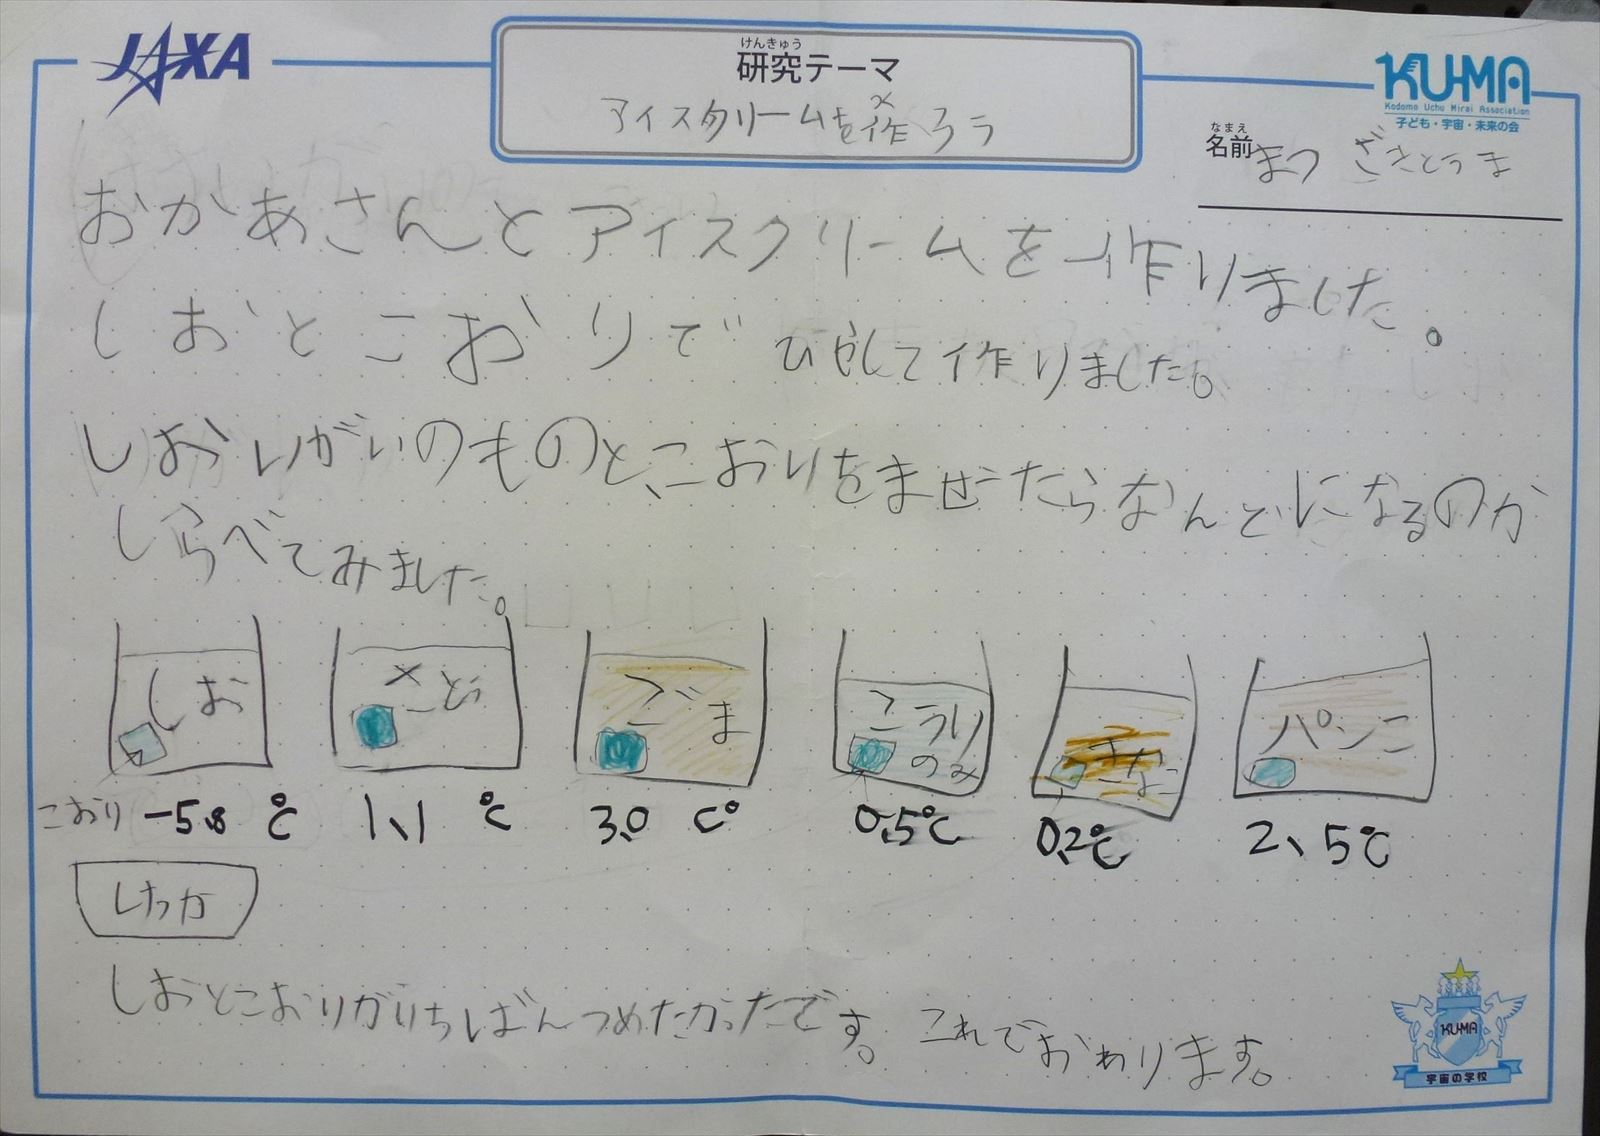 JAXA
けんきゅう
研究テーマ
アイスクリームを作ろう
KU-MA
Kodomo Uchu Mirai Association
子ども・宇宙・未来の会
なまえ
名前 まつざきとうま
おかあさんとアイスクリームを作りました。
しおとこおりでひやして作りました。
しおいがいのものと、こおりをまぜたらなんどになるのか
しらべてみました。
しお さとう ごま こうりのみ きなこ パンこ
こおり -5.8℃ 1、1℃ 3.0C° 0.5℃ 0.2℃ 2、5℃
けっか
しおとこおりがいちばんつめたかったです。これでおわります。
KU-MA
宇宙の学校